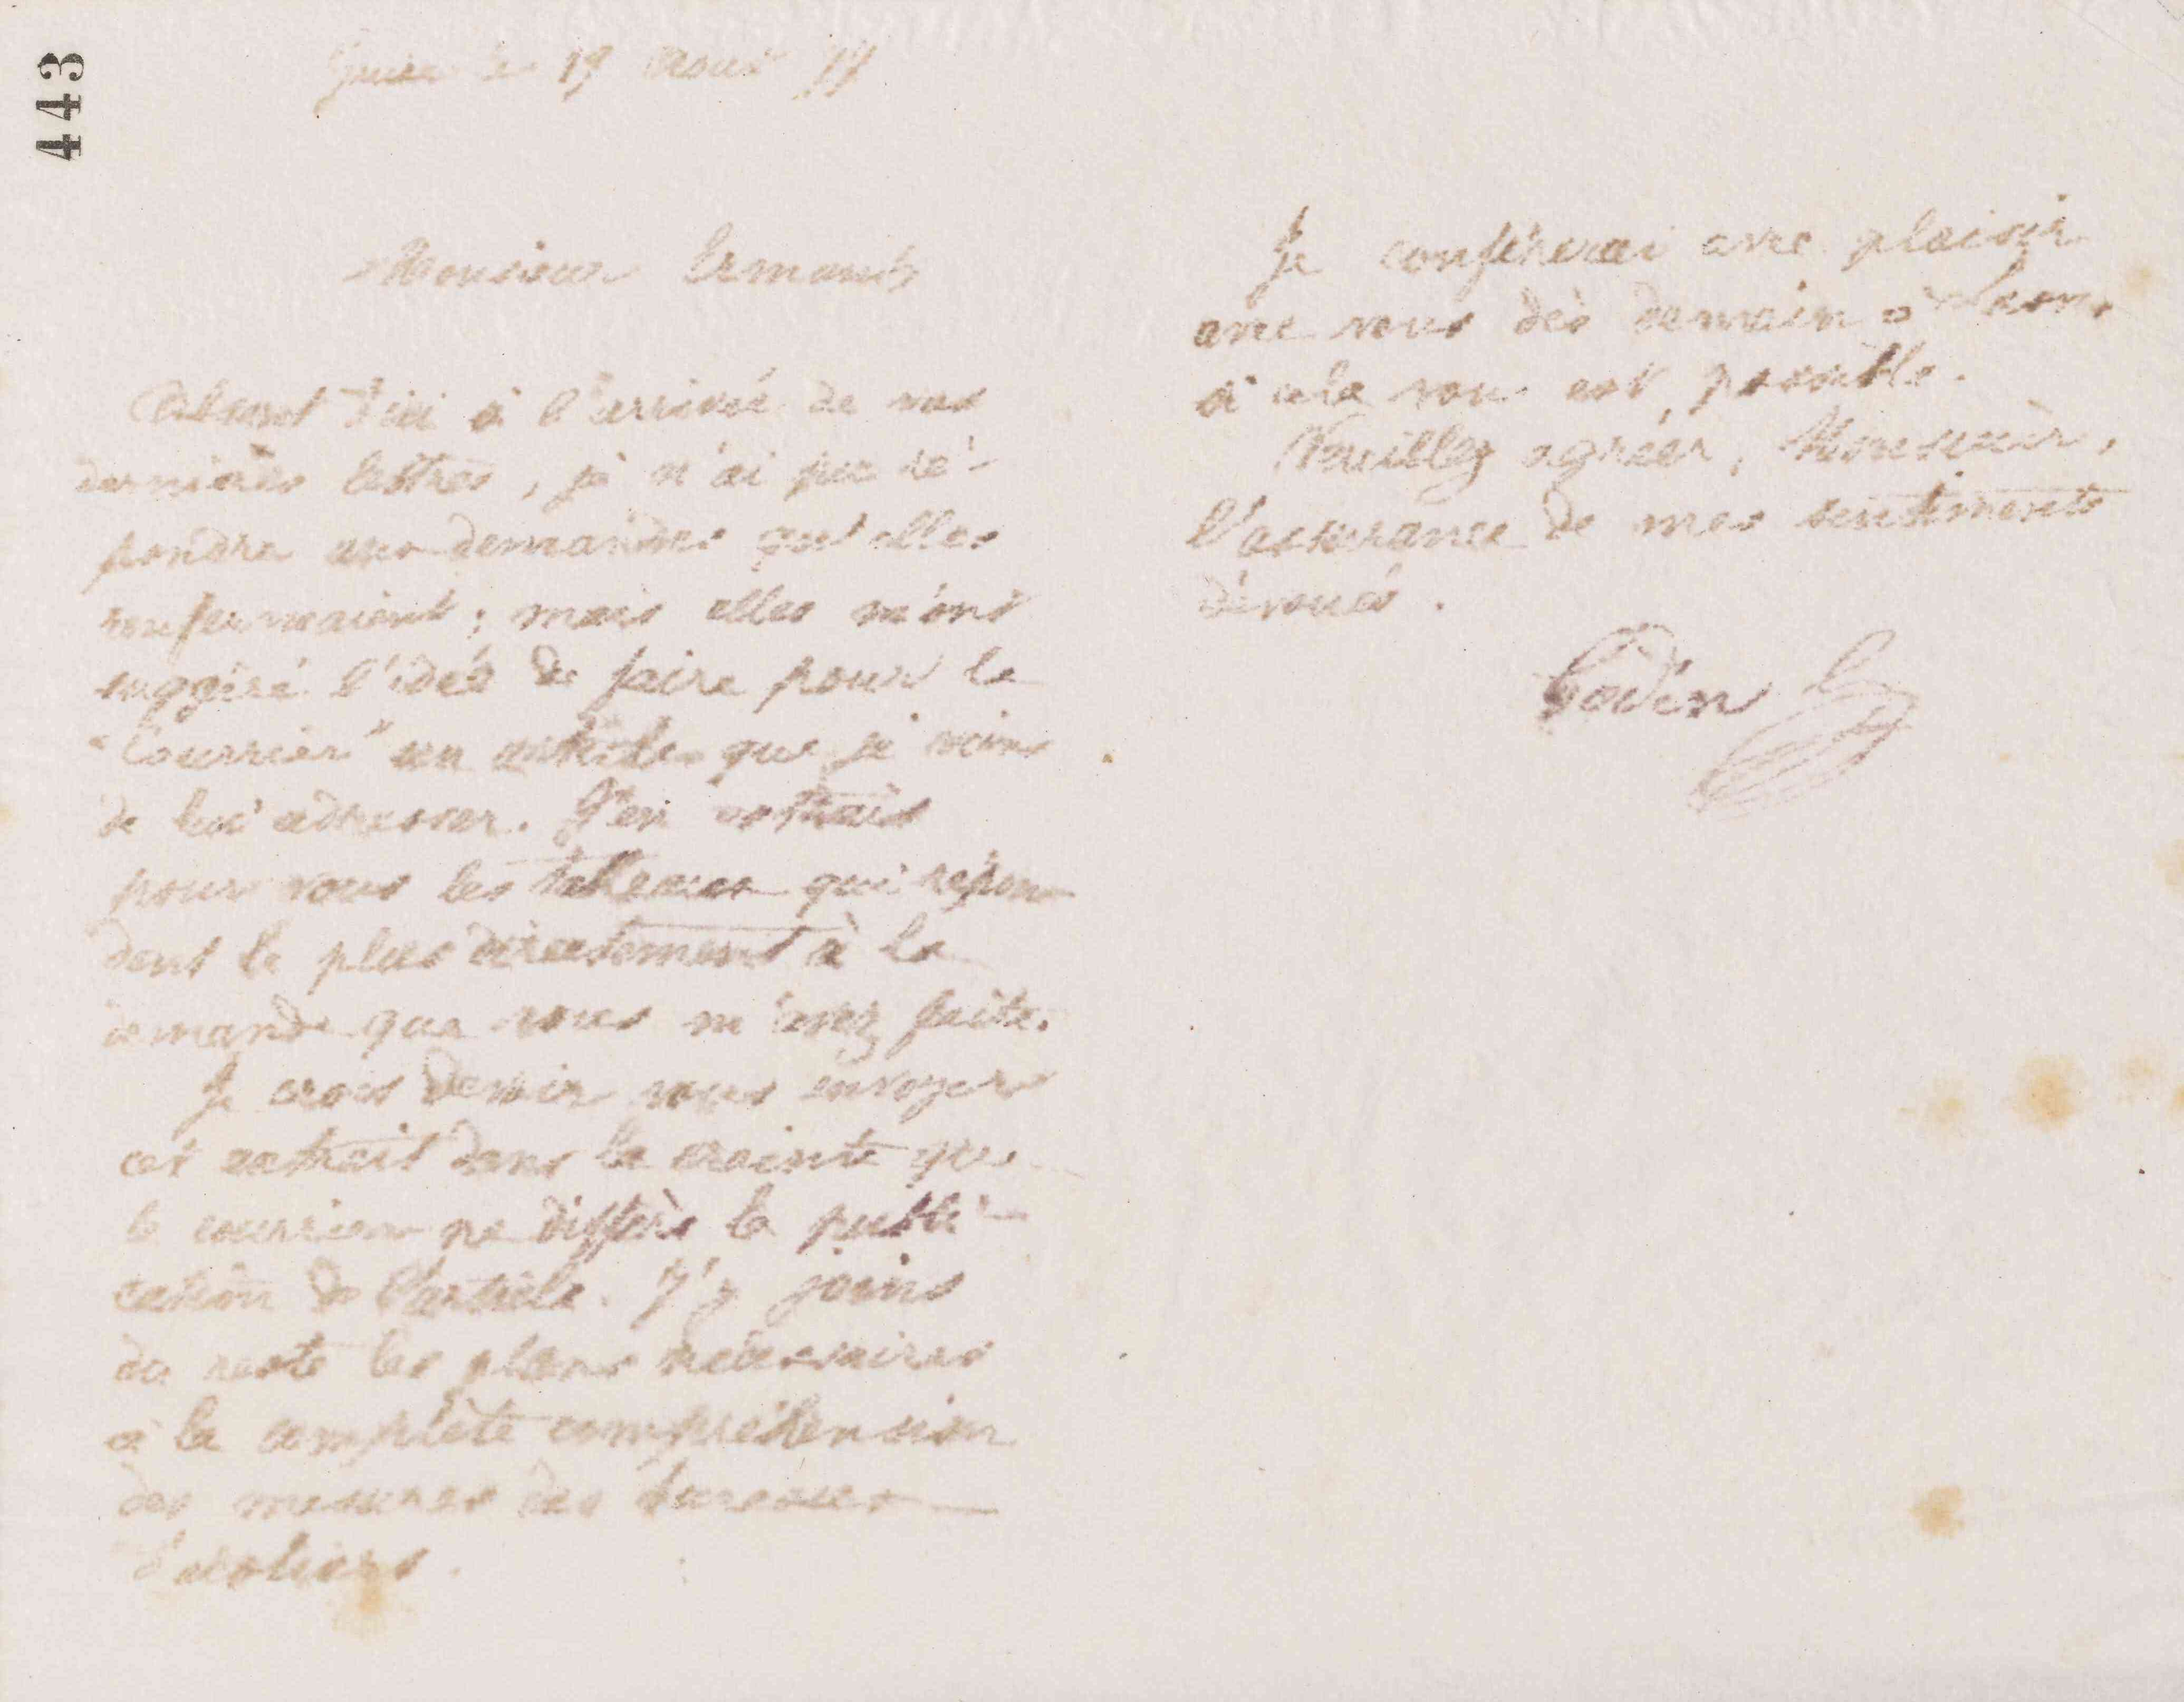 443
Guise le 19 Aout 77
Monsieur Ermant
Absent d'ici à l'arrivée de vos
dernières lettres, je n'ai pu ré-
pondre aux demandes qu'elles
renfermaient ; mais elles m'ont
suggéré l'idée de faire pour le
"Courrier" un article que je viens
de lui adresser. J'en extrais
pour vous les tableaux qui répon-
dent le plus directement à la
demande que vous m'avez faite.
Je crois devoir vous envoyer
cet extrait dans la crainte que
le courrier ne diffère la publi-
cation de l'article. J'y joins
du reste les plans nécessaires
à la complète compréhension
des mesures des bureaux
d'écoliers.
Je conférerai avec plaisir
avec vous dès demain à Laon,
si cela vous est possible.
Veuillez agréer, Monsieur,
l'assurance de mes sentiments
dévoués.
Godin